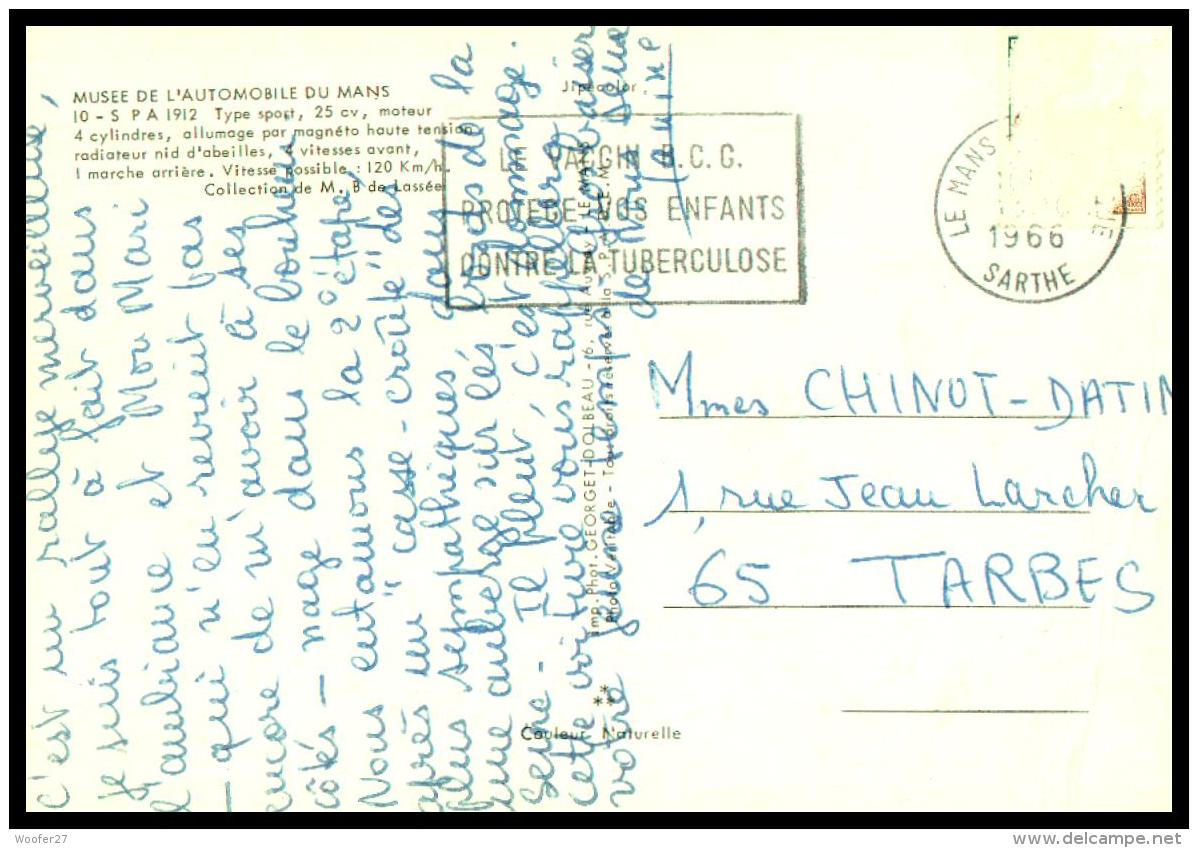 MUSEE DE L'AUTOMOBILE DU MANS
10 - S P A 1912 Type sport, 25 cv, moteur
4 cylindres, allumage par magnéto haute tension
radiateur nid d'abeilles, 4 vitesses avant,
1 marche arrière. Vitesse possible : 120 Km/h.
Collection de M. B de Lassée
Jipécolor
LE VACCIN B.C.G.
PROTEGE VOS ENFANTS
CONTRE LA TUBERCULOSE
LE MANS
1966
SARTHE
c'est un rallye merveilleux,
je suis tout à fait dans
l'ambiance et Mon Mari
- qui n'en revient pas
encore de m'avoir à ses
côtés - nage dans le bonheur
Nous entamons la 2° étape,
après un "casse-croûte" des
plus sympathiques dans
une auberge sur les bords de la
Seine - Il pleut, c'est dommage.
cette voiture vous rappellera
votre jeune temps
de nous deux
Janine
Imp. Phot. GEORGET-DOLBEAU - 6, rue Auvray - LE MANS
Photo Véritable - Tous droits réservés
Couleur Naturelle
Mmes CHINOT-DATIN
1, rue Jean Larcher
65 TARBES
Woofer27
delcampe.net